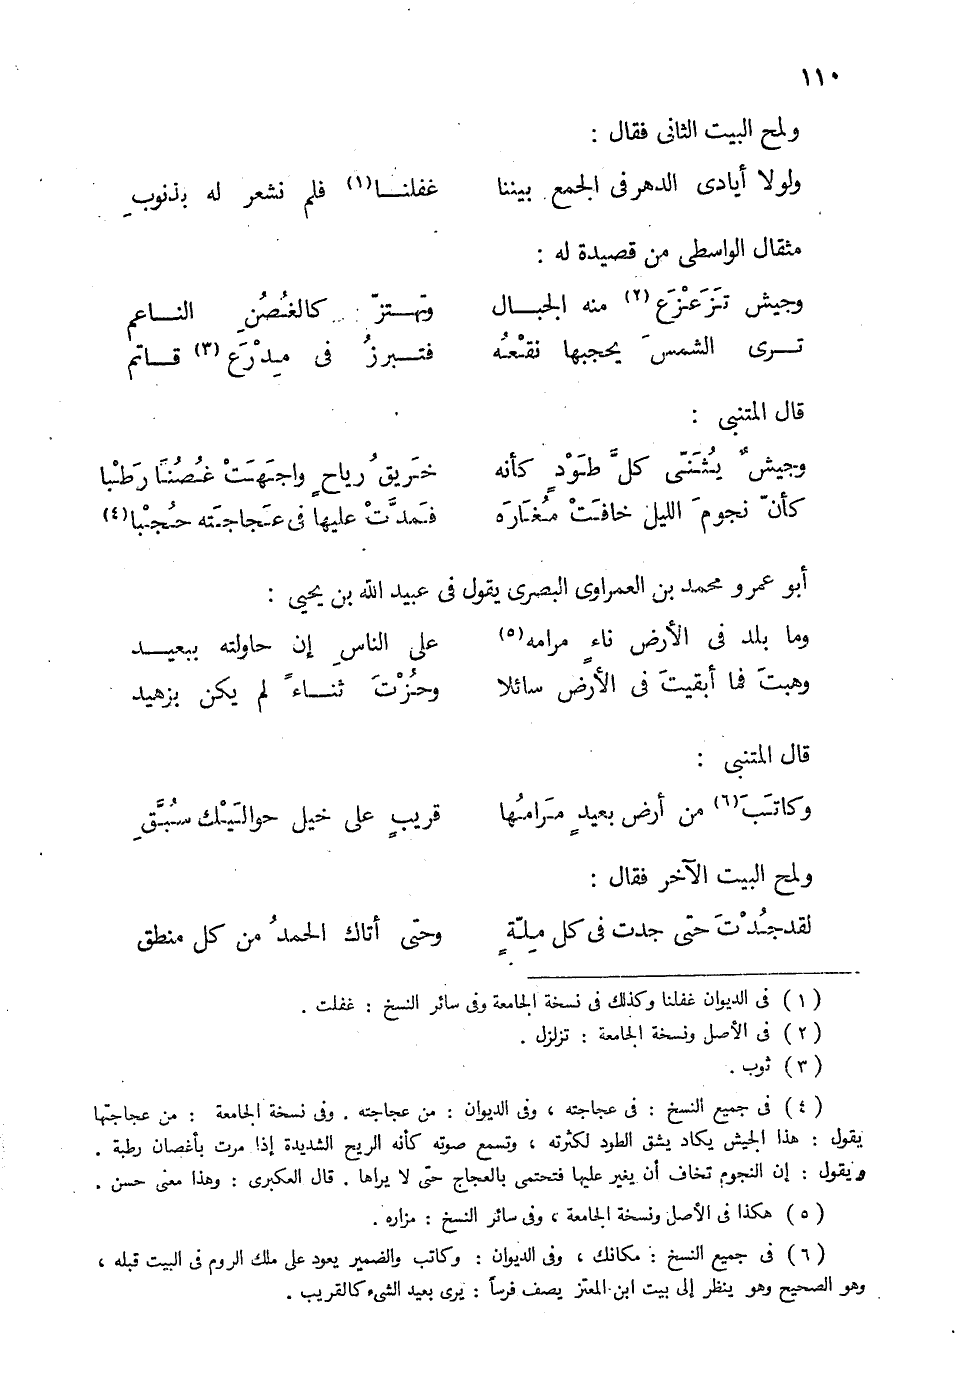 ١١٠
ولمح البيت الثانى فقال :
ولولا أيادى الدهر فى الجمع بيننا غفلنــا(١) فلم نشعر له بذنوبِ
مثقال الواسطى من قصيدة له :
وجيش تَزَعْزَع(٢) منه الجبــال وتهــتزّ كالغُصُنِ النــاعم
تــرى الشمسَ يحجبها نقْعُه فتــبرزُ فى مِدْرَع(٣) قــاتم
قال المتنبى :
وجيشٌ يُثَنَّى كلَّ طَوْدٍ كأنه خَريقُ رياحٍ واجَهَتْ غُصُنًا رَطْبا
كأنّ نجومَ الليل خافَتْ مُغَارَه فَمدَّتْ عليها فى عَجاجَته حُجْبا(٤)
أبو عمرو محمد بن العمراوى البصرى يقول فى عبيد الله بن يحيى :
وما بلد فى الأرض ناءٍ مرامه(٥) على الناسِ إن حاولته ببعيــد
وهبتَ فما أبقيتَ فى الأرض سائلا وحُزْتَ ثنــاءً لم يكن بزهيد
قال المتنبى :
وكاتَبَ(٦) من أرض بعيدٍ مَرَامُها قريبٍ على خيل حوالَيْك سُبَّقِ
ولمح البيت الآخر فقال :
لقد جُدْتَ حتّى جدت فى كل مِلّةٍ وحتّى أتاك الحمدُ من كل منطق
(١) فى الديوان غفلنا وكذلك فى نسخة الجامعة وفى سائر النسخ : غفلت .
(٢) فى الأصل ونسخة الجامعة : تزلزل .
(٣) ثوب .
(٤) فى جميع النسخ : فى عجاجته ، وفى الديوان : من عجاجته . وفى نسخة الجامعة : من عجاجتها
يقول : هذا الجيش يكاد يشق الطود لكثرته ، وتسمع صوته كأنه الريح الشديدة إذا مرت بأغصان رطبة .
ويقول : إن النجوم تخاف أن يغير عليها فتحتمى بالعجاج حتّى لا يراها . قال العكبرى : وهذا معنى حسن .
(٥) هكذا فى الأصل ونسخة الجامعة ، وفى سائر النسخ : مزاره .
(٦) فى جميع النسخ : مكانك ، وفى الديوان : وكاتب والضمير يعود على ملك الروم فى البيت قبله ،
وهو الصحيح وهو ينظر إلى بيت ابن المعتز يصف فرساً : يرى بعيد الشىء كالقريب .